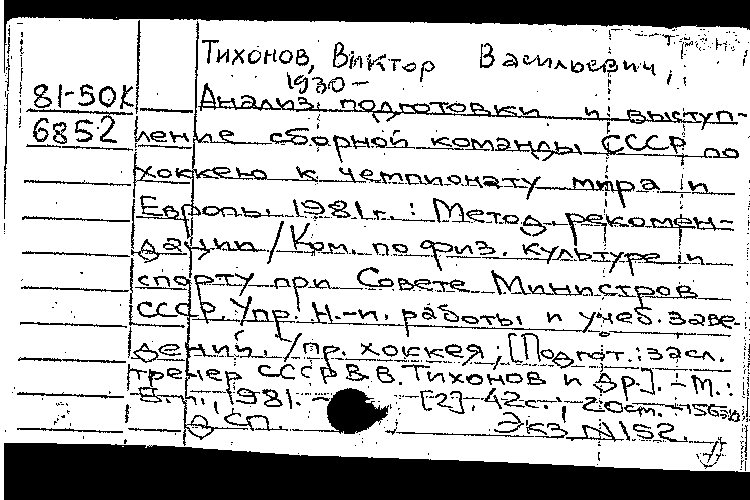 Тихонов, Виктор Васильевич,
1930-
81-50К
6852
Анализ подготовки и выступ-
ление сборной команды СССР по
хоккею к чемпионату мира и
Европы 1981г. : Метод. рекомен-
дации / Ком. по физ. культуре и
спорту при Совете Министров
СССР, Упр. Н.-и. работы и учеб. заве-
дений. Упр. хоккея; [Подгот.: засл.
тренер СССР В.В. Тихонов и др.]. - М.:
Б.и., 1981. - [2], 42с.; 20см.
ДСП. Экз N152.